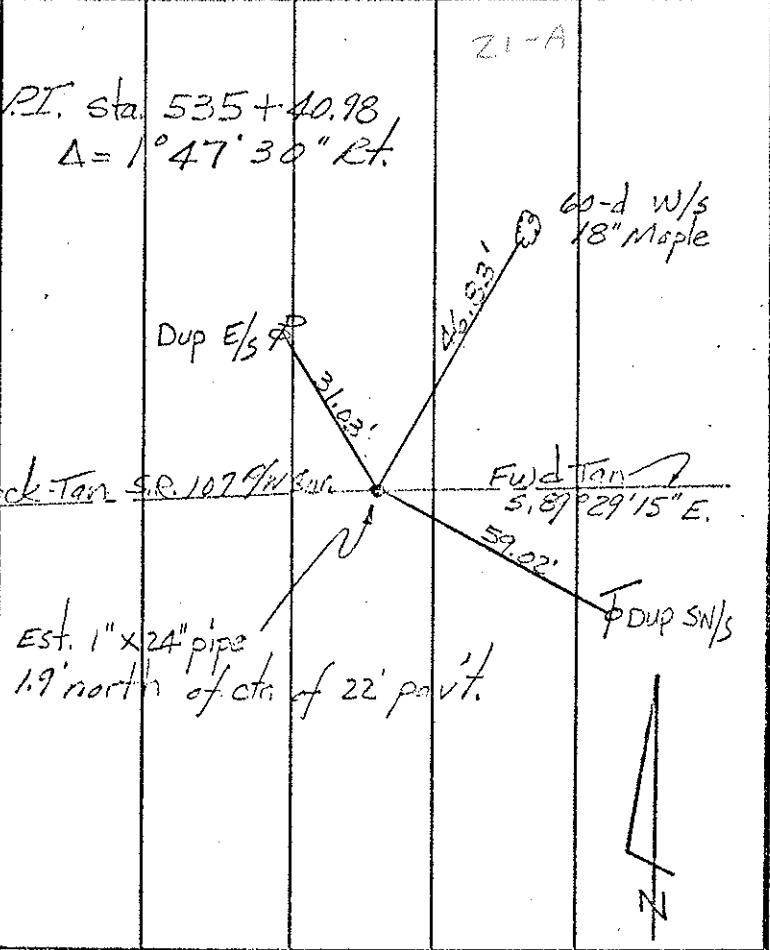 21-A
P.I. Sta. 535+40.98
Δ= 1°47'30" Rt.
60-d W/s
18" Maple
46.83'
Dup E/s
31.03'
ck-Tan S.R. 107
Fwd Tan
S. 89°29'15" E.
59.02'
Dup SW/s
Est. 1" x 24" pipe
1.9' north of ctr. of 22' pav't.
N